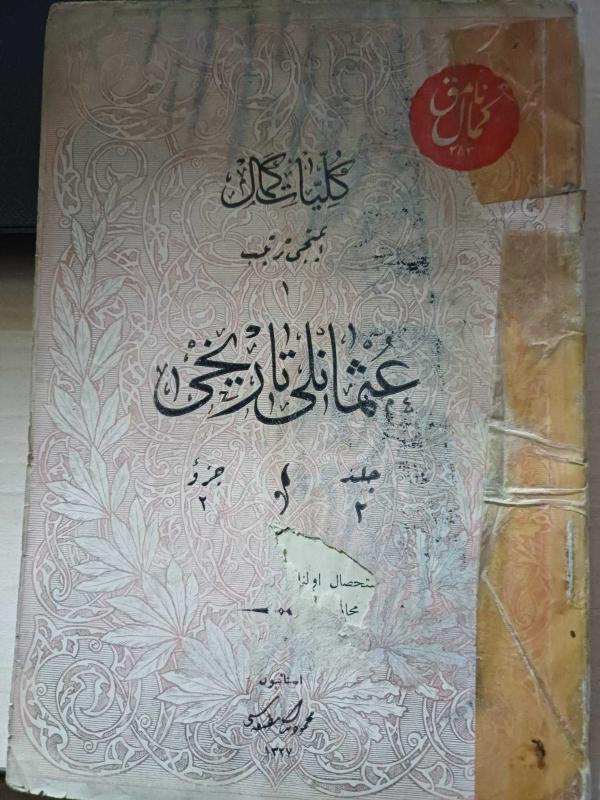 نامق
كمال
٢٨٣
كلّيات كمال
برنجى ترتيب
١
عثمانلى تاريخى
جلد
٢
جزؤ
٢
ستحصال اولنا
محا
استانبول
محمود بك مطبعه سى
١٣٢٧